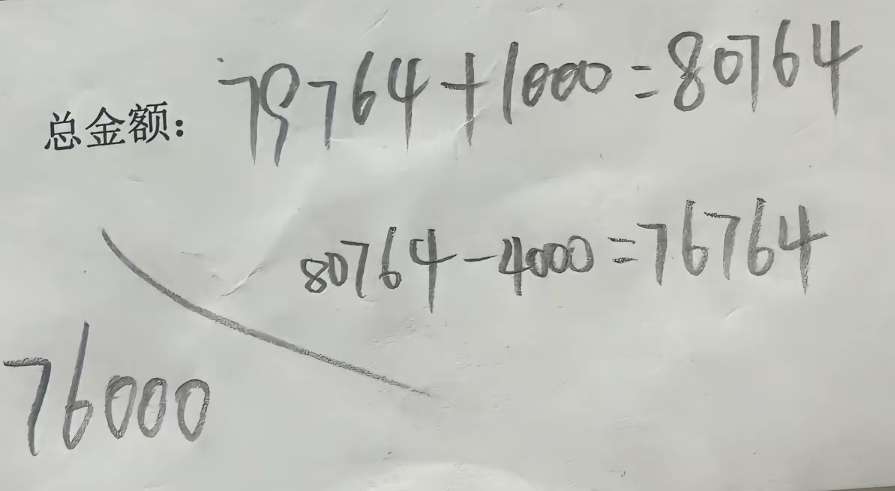 总金额: 79764+1000=80764
80764-4000=76764
76000